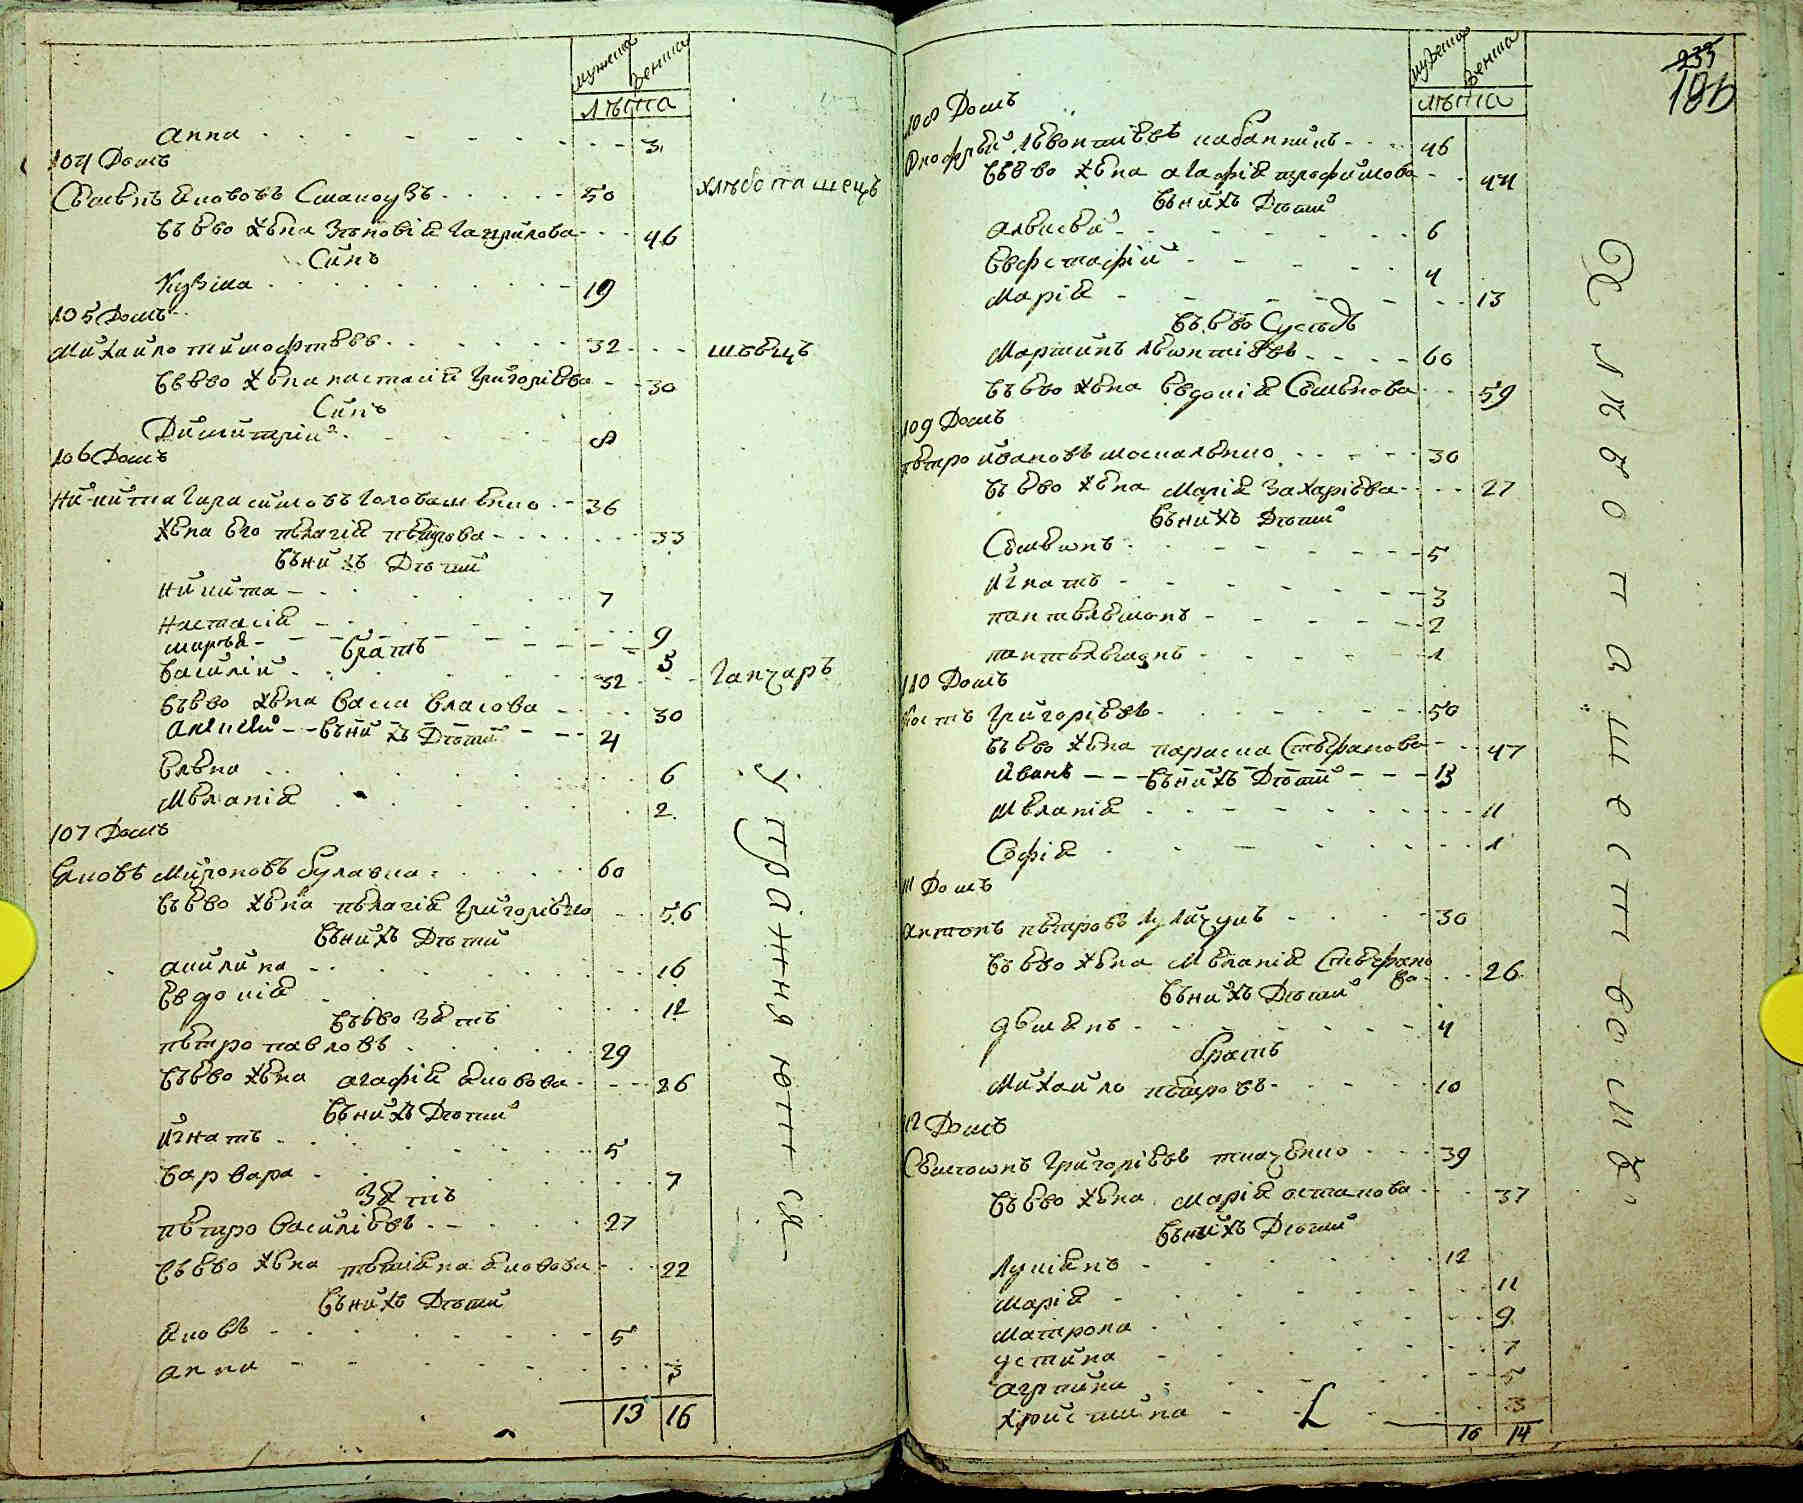 мужеска женска
лѣта
Анна 3
104 Домъ
Семенъ Якововъ 50 хлѣбопашецъ
Въ ево жена Зѣновія Гаврилова 46
Синъ
Кузма 19
105 Домъ
Михайло Тимофѣевъ 32 швецъ
Въ ево жена Настасія Григоріева 30
Синъ
Димитрій 8
106 Домъ
Никита Гарасимовъ Головашенко 36
Жена его Пелагія Петрова 33
Въ нихъ Дѣти
Никита 7
Настасія 9
Марѳа 5
братъ
Василій 32 Ганчаръ
Въ ево жена Васса Власова 30
Алексей Въ нихъ Дѣти 4
Елена 6
Меланія 2
107 Домъ
Яковъ Мироновъ Булавка 60
Въ ево жена Пелагія Григоріева 56
Въ нихъ Дѣти
Акилина 16
Евдокія 12
Въ ево Зять
Петро Павловъ 29
Въ ево жена Агафія Яковова 26
Въ нихъ Дѣти
Игнатъ 5
Варвара 7
Зять
Петро Василіевъ 27
Въ ево жена Яковова 22
Въ нихъ Дѣти
Яковъ 5
Анна 3
13 16
упражняются
233
мужеска женска
лѣта
108 Домъ
Онофрей Левонтіевъ 46
Въ ево жена Агафія Трофимова 44
Въ нихъ Дѣти
Алексей 6
Евфстафій 4
Марія 13
Въ ево Сусѣдъ
Мартинъ Левонтіевъ 60
Въ ево жена Евдокія Семенова 59
109 Домъ
Петро Ивановъ Москаленко 30
Въ ево жена Марія Захаріева 27
Въ нихъ Дѣти
Семенъ 5
Игнатъ 3
Пантелемонъ 2
Пантелемонъ 1
110 Домъ
Григоріевъ 50
Въ ево жена Параска Стефанова 47
Иванъ Въ нихъ Дѣти 13
Меланія 11
Софія 1
111 Домъ
Антонъ Петровъ 30
Въ ево жена Меланія Стефано
ва 26
Въ нихъ Дѣти
Демянъ 4
братъ
Михайло Петровъ 10
112 Домъ
Семіонъ Григоріевъ Ткаченко 39
Въ ево жена Марія Остапова 37
Въ нихъ Дѣти
Лукіянъ 12
Марія 11
Матрона 9
Устина 7
Агрипина 5
Христина 3
16 14
Хлѣбопашествомъ